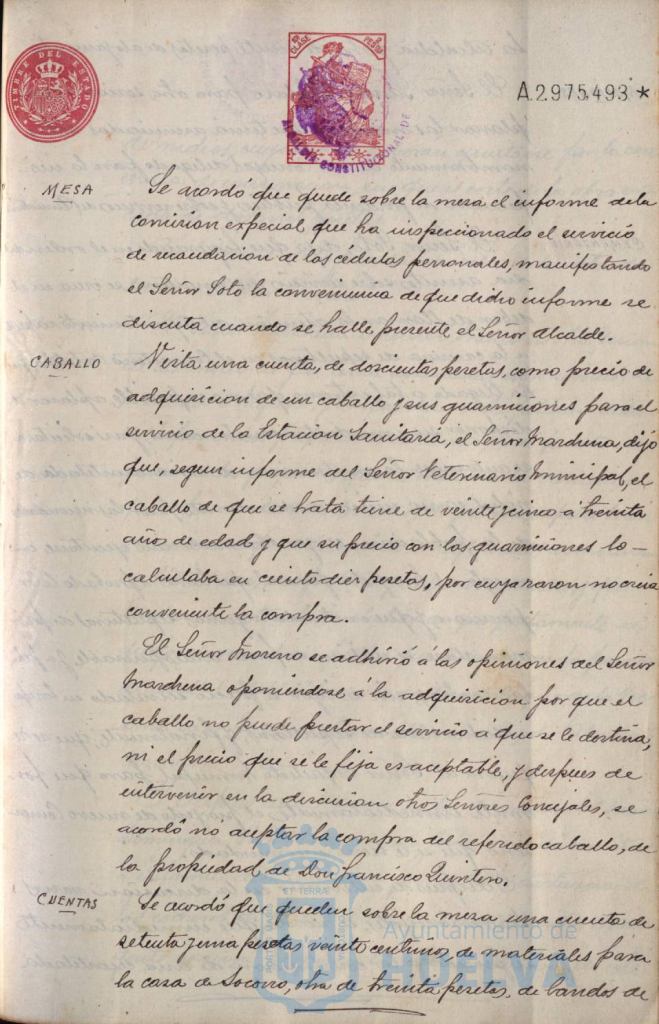 TIMBRE DEL ESTADO
10ª CLASE
2 PESETAS
ALCALDIA CONSTITUCIONAL DE
A.2.975.493 *
MESA
Se acordó que quede sobre la mesa el informe de la
comision especial que ha inspeccionado el servicio
de recaudacion de las cédulas personales, manifestando
el Señor Soto la conveniencia de que dicho informe se
discuta cuando se halle presente el Señor Alcalde.
CABALLO
Vista una cuenta, de doscientas pesetas, como precio de
adquisicion de un caballo y sus guarniciones para el
servicio de la Estacion Sanitaria, el Señor Marchena, dijo
que, segun informe del Señor Veterinario Municipal, el
caballo de que se trata tiene de veinte y cinco á treinta
años de edad y que su precio con las guarniciones lo
calculaba en ciento diez pesetas, por cuya razon no creia
conveniente la compra.
El Señor Moreno se adhirió á las opiniones del Señor
Marchena oponiéndose á la adquisicion por que el
caballo no puede prestar el servicio á que se le destina,
ni el precio que se le fija es aceptable, y despues de
intervenir en la discusion otros Señores Concejales, se
acordó no aceptar la compra del referido caballo, de
la propiedad de Don Francisco Quintero.
CUENTAS
Se acordó que queden sobre la mesa una cuenta de
setenta y una pesetas veinte centimos, de materiales para
la casa de Socorro, otra de treinta pesetas, de bandos de
ET TERRA
Ayuntamiento de
HUELVA